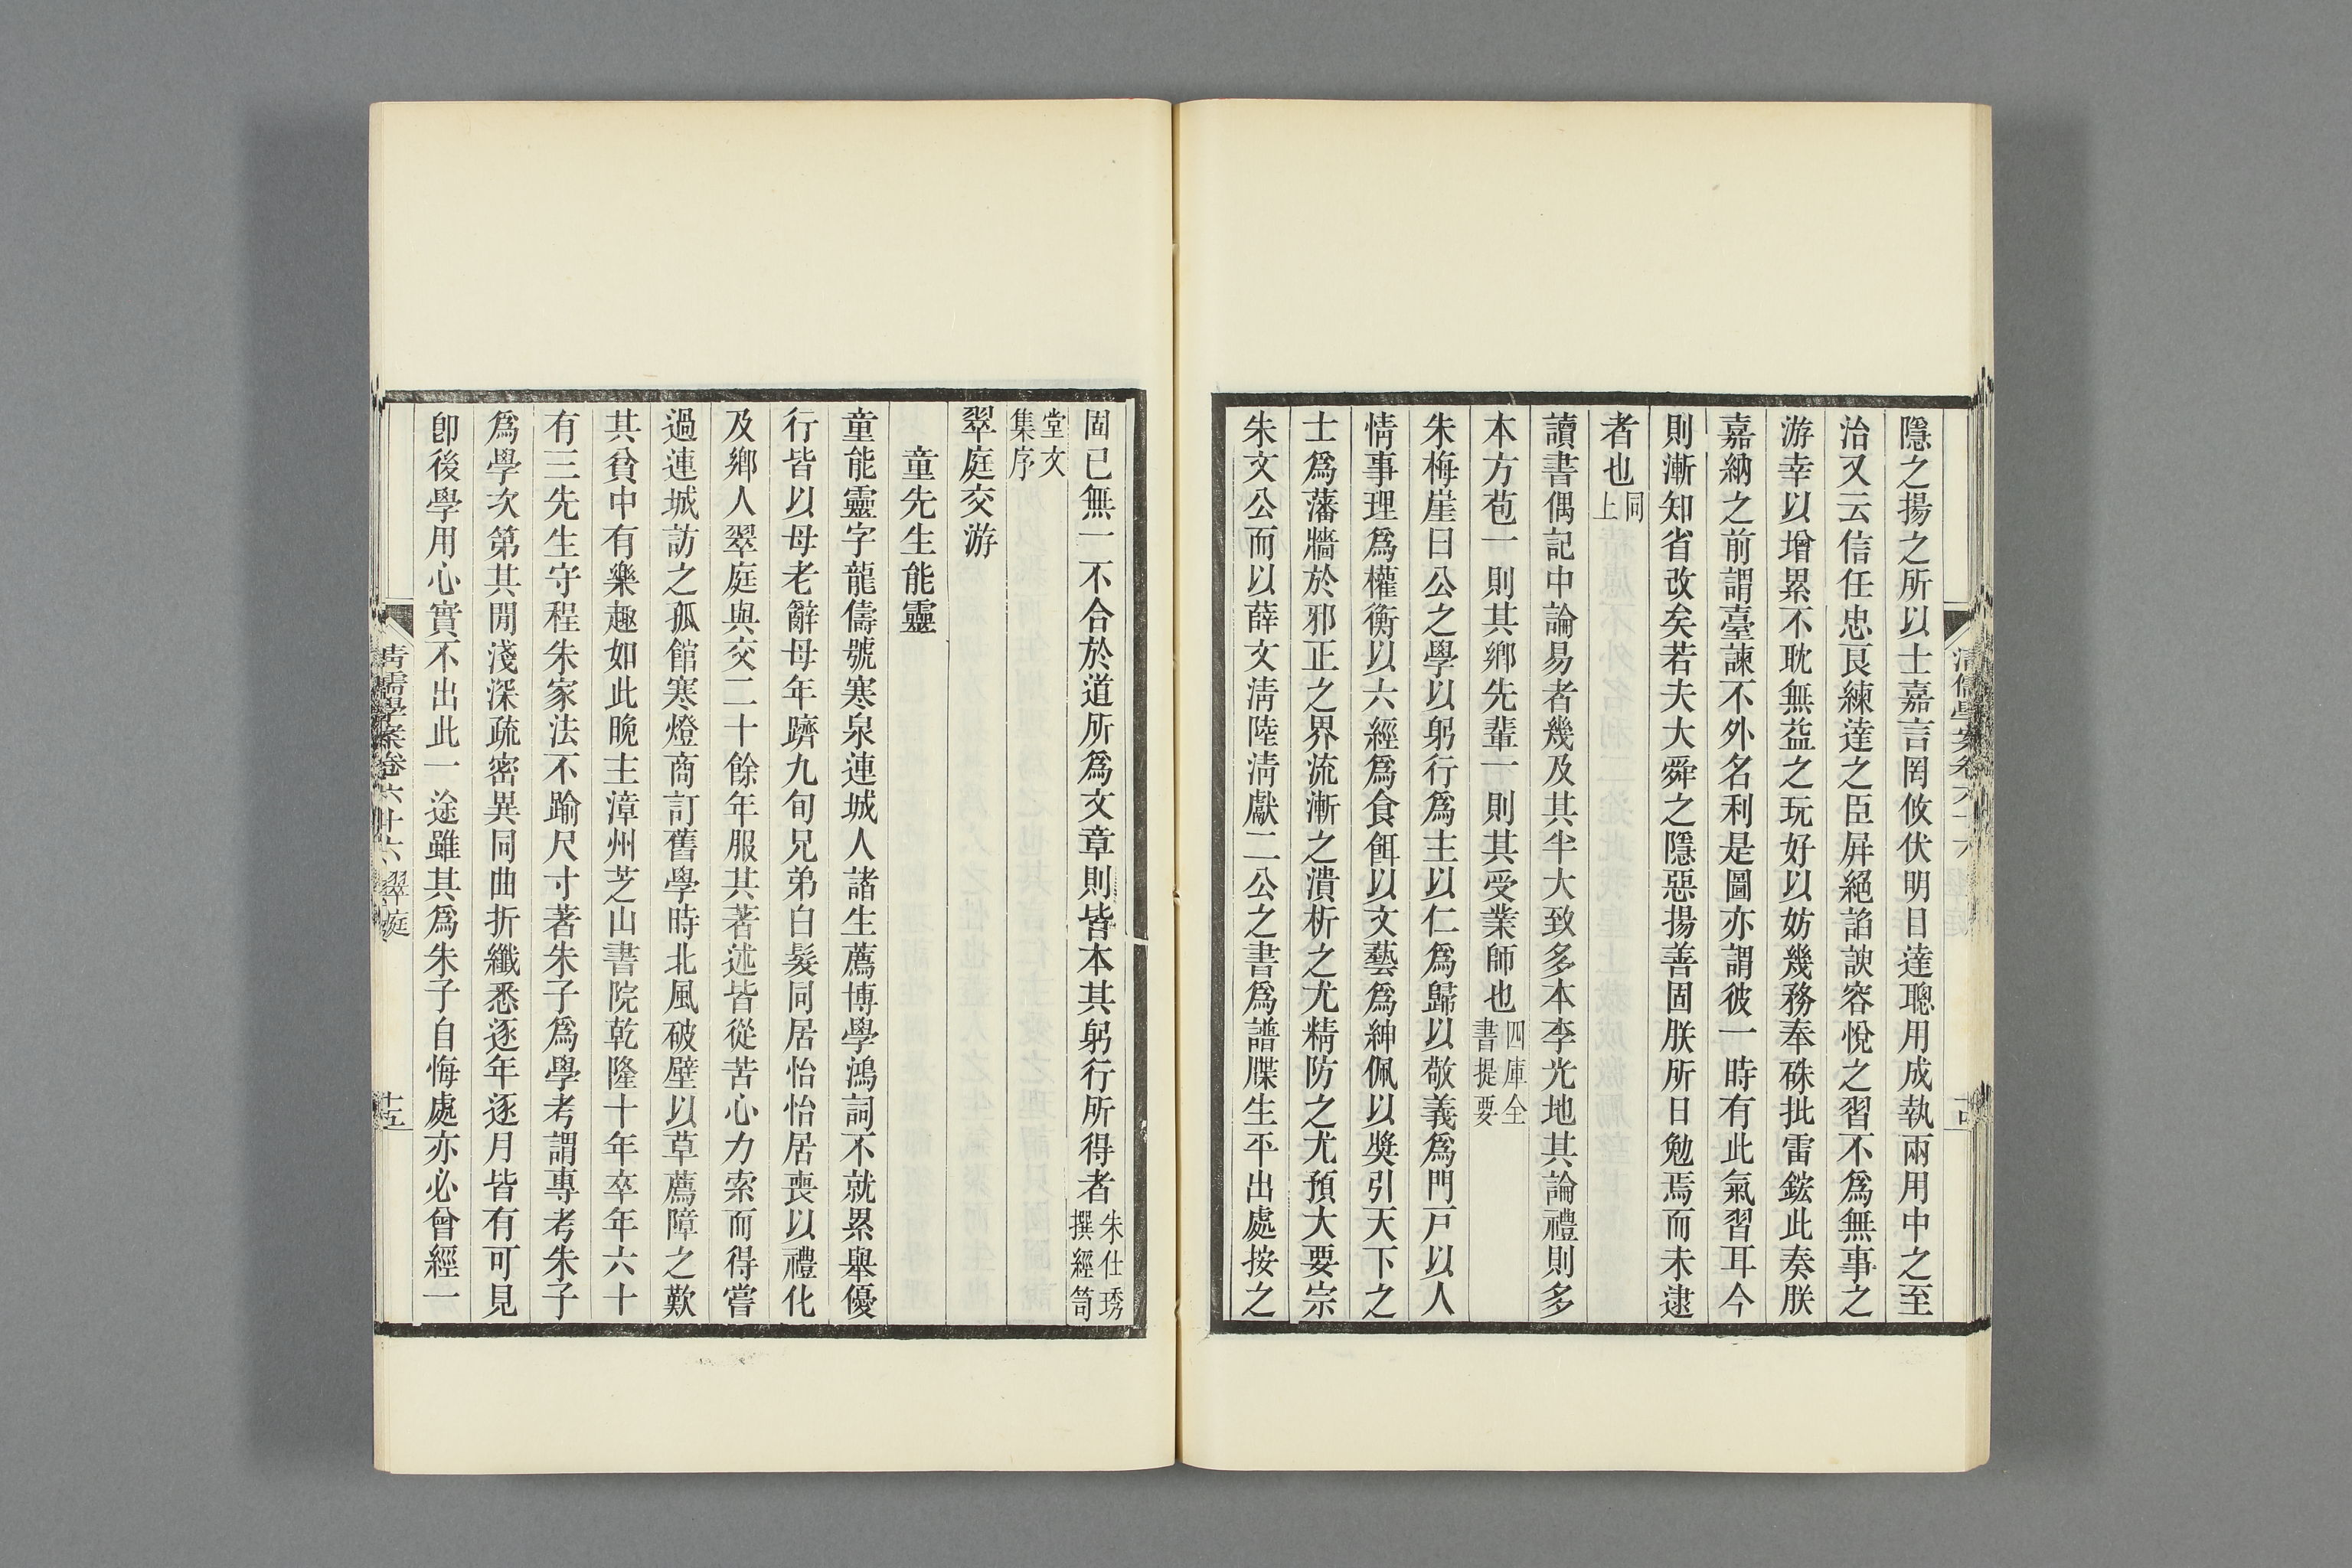 隱之揚之所以士嘉言罔攸伏明目達聰用成執兩用中之至
治又云信任忠良練達之臣屛絕諂諛容悅之習不爲無事之
游幸以增累不耽無益之玩好以妨幾務奉硃批雷鋐此奏朕
嘉納之前謂臺諫不外名利是圖亦謂彼一時有此氣習耳今
則漸知省改矣若夫大舜之隱惡揚善固朕所日勉焉而未逮
者也同上
讀書偶記中論易者幾及其半大致多本李光地其論禮則多
本方苞一則其鄉先輩一則其受業師也四庫全書提要
朱梅崖曰公之學以躬行爲主以仁爲歸以敬義爲門戸以人
情事理爲權衡以六經爲食餌以文藝爲紳佩以奬引天下之
士爲藩牆於邪正之界流漸之潰析之尤精防之尤預大要宗
朱文公而以薛文淸陸淸獻二公之書爲譜牒生平出處按之
固已無一不合於道所爲文章則皆本其躬行所得者朱仕琇撰經笥
堂文集序
翠庭交游
童先生能靈
童能靈字龍儔號寒泉連城人諸生薦博學鴻詞不就累舉優
行皆以母老辭母年躋九旬兄弟白髮同居怡怡居喪以禮化
及鄉人翠庭與交二十餘年服其著述皆從苦心力索而得嘗
過連城訪之孤館寒燈商訂舊學時北風破壁以草薦障之歎
其貧中有樂趣如此晚主漳州芝山書院乾隆十年卒年六十
有三先生守程朱家法不踰尺寸著朱子爲學考謂專考朱子
爲學次第其閒淺深疏密異同曲折纖悉逐年逐月皆有可見
卽後學用心實不出此一途雖其爲朱子自悔處亦必曾經一
淸儒學案卷六十六 翠庭
十五